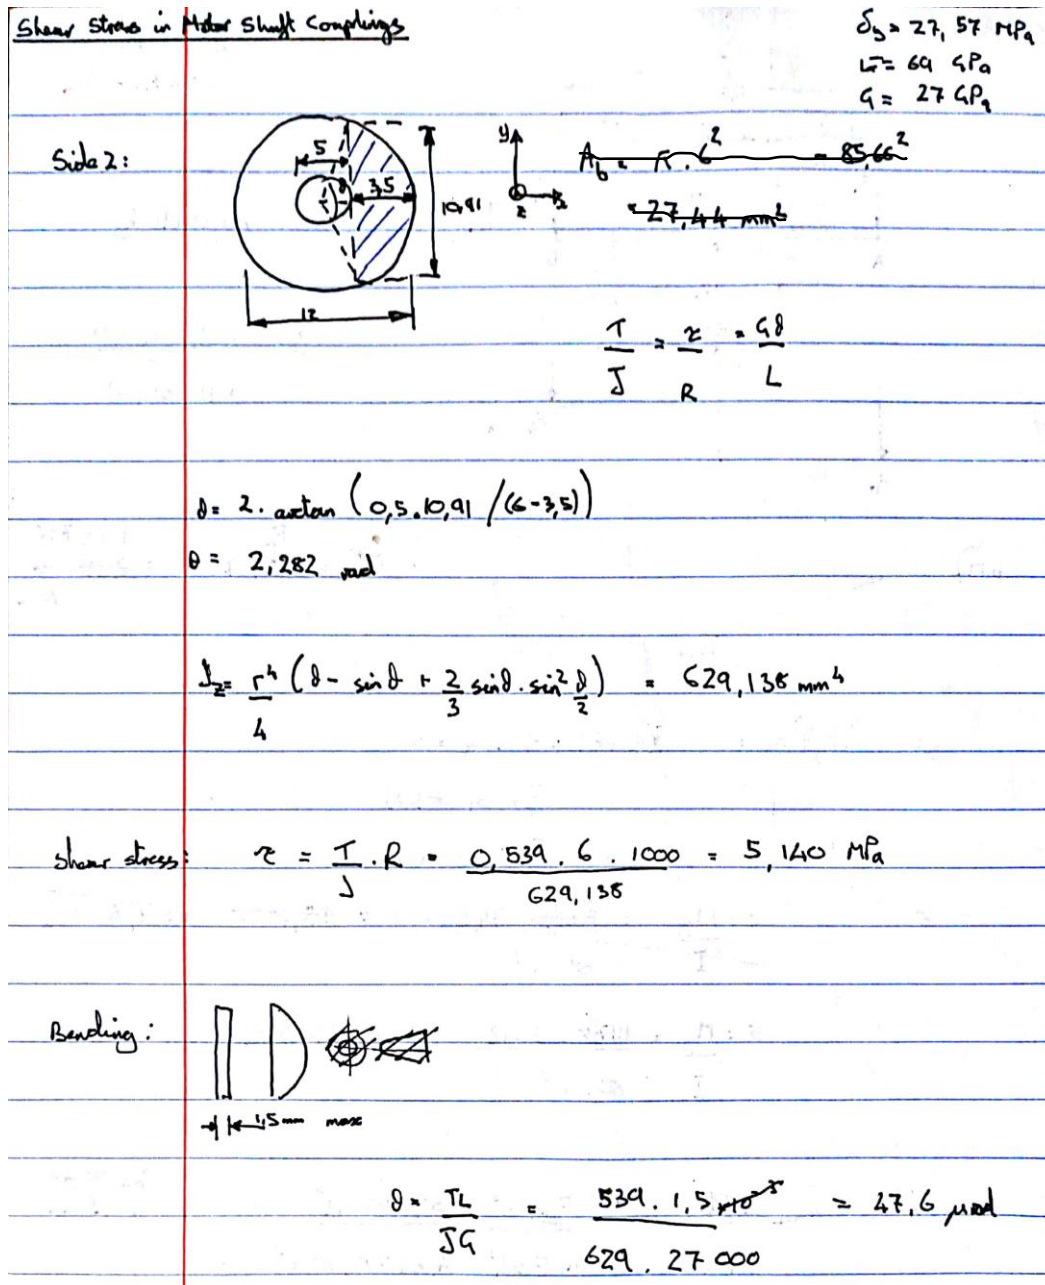 Shear Stress in Motor Shaft Couplings
δy = 27,57 MPa
E = 69 GPa
G = 27 GPa
Side 2:
5
θ
3,5
10,91
12
y
z
x
A_b = π.6² = 85,66²
= 27,44 mm²
T/J = τ/R = Gθ/L
θ = 2. arctan (0,5.10,91 /(6-3,5))
θ = 2,282 rad
J_z = r⁴/4 (θ - sinθ + 2/3 sinθ . sin² θ/2) = 629,138 mm⁴
Shear stress: τ = T/J . R = 0,539 . 6 . 1000 / 629,138 = 5,140 MPa
Bending:
1,5 mm max
θ = TL/JG = 539 . 1,5 / 629 . 27 000 = 47,6 μrad